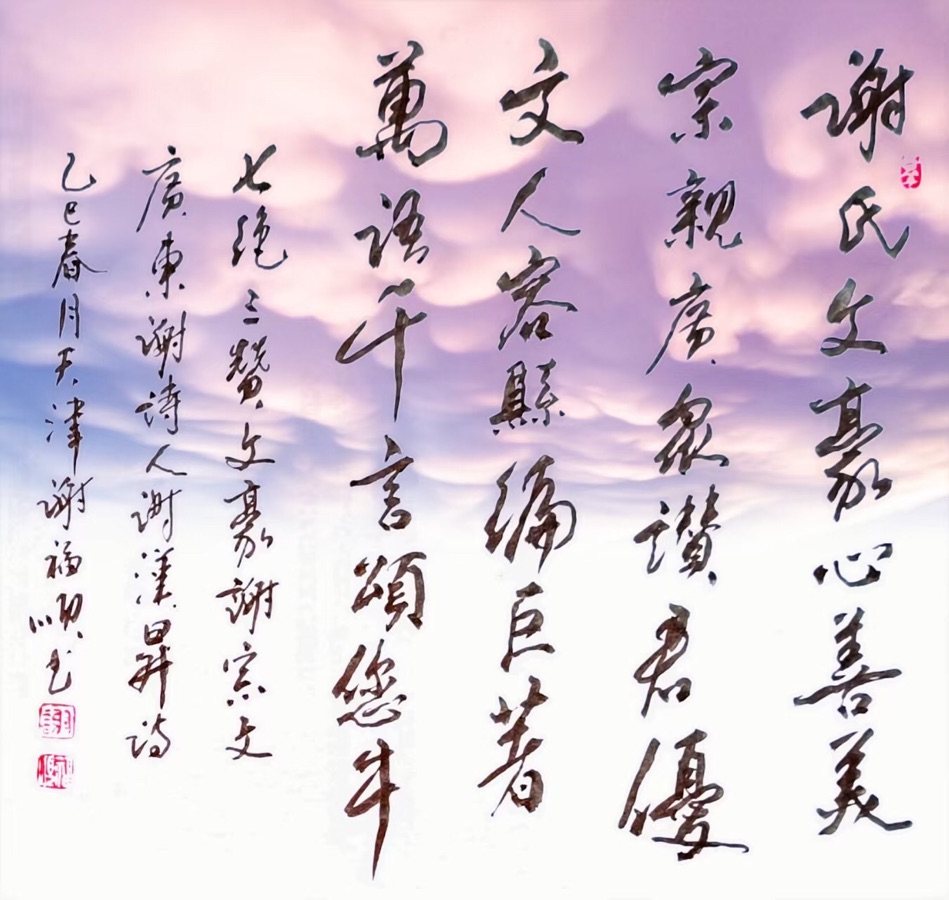 謝氏文豪心善美
宗親廣衆讚君優
文人容縣編巨著
萬語千言頌您牛
七绝三贊文豪謝宗文
廣東謝詩人謝漢昇詩
乙巳春月天津謝福順书